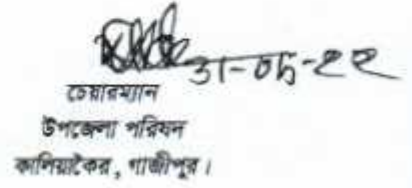 ৩১-০৮-২২
চেয়ারম্যান
উপজেলা পরিষদ
কালিয়াকৈর, গাজীপুর।